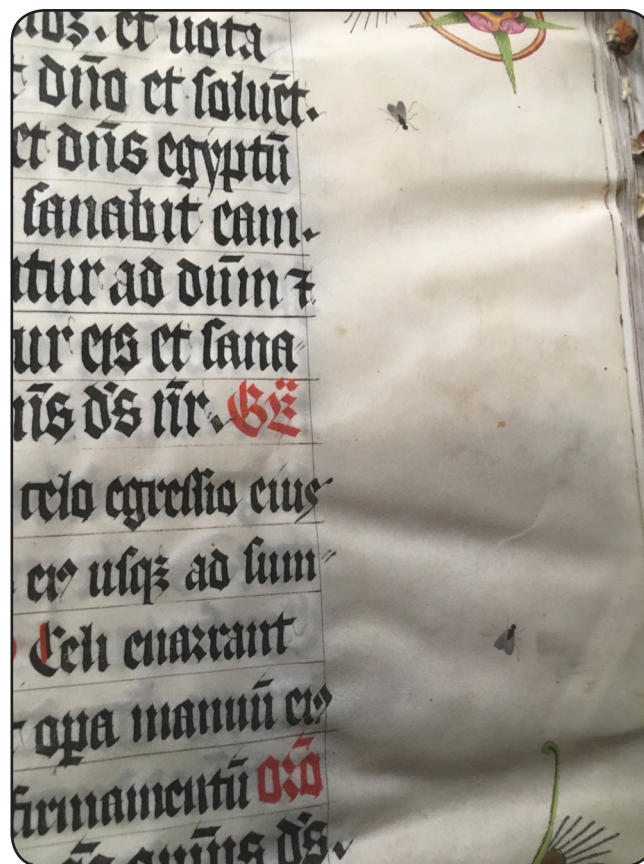 et uota
dn̄o et soluēt.
et dn̄s egyptū
sanabit eam.
ad dūm ⁊
eis et sana
d̄s nr̄. GR̄
celo egressio eius
eiꝰ usqꝫ ad sum
Celi enarrant
opa manuū eiꝰ
firmamentū orō
d̄s.